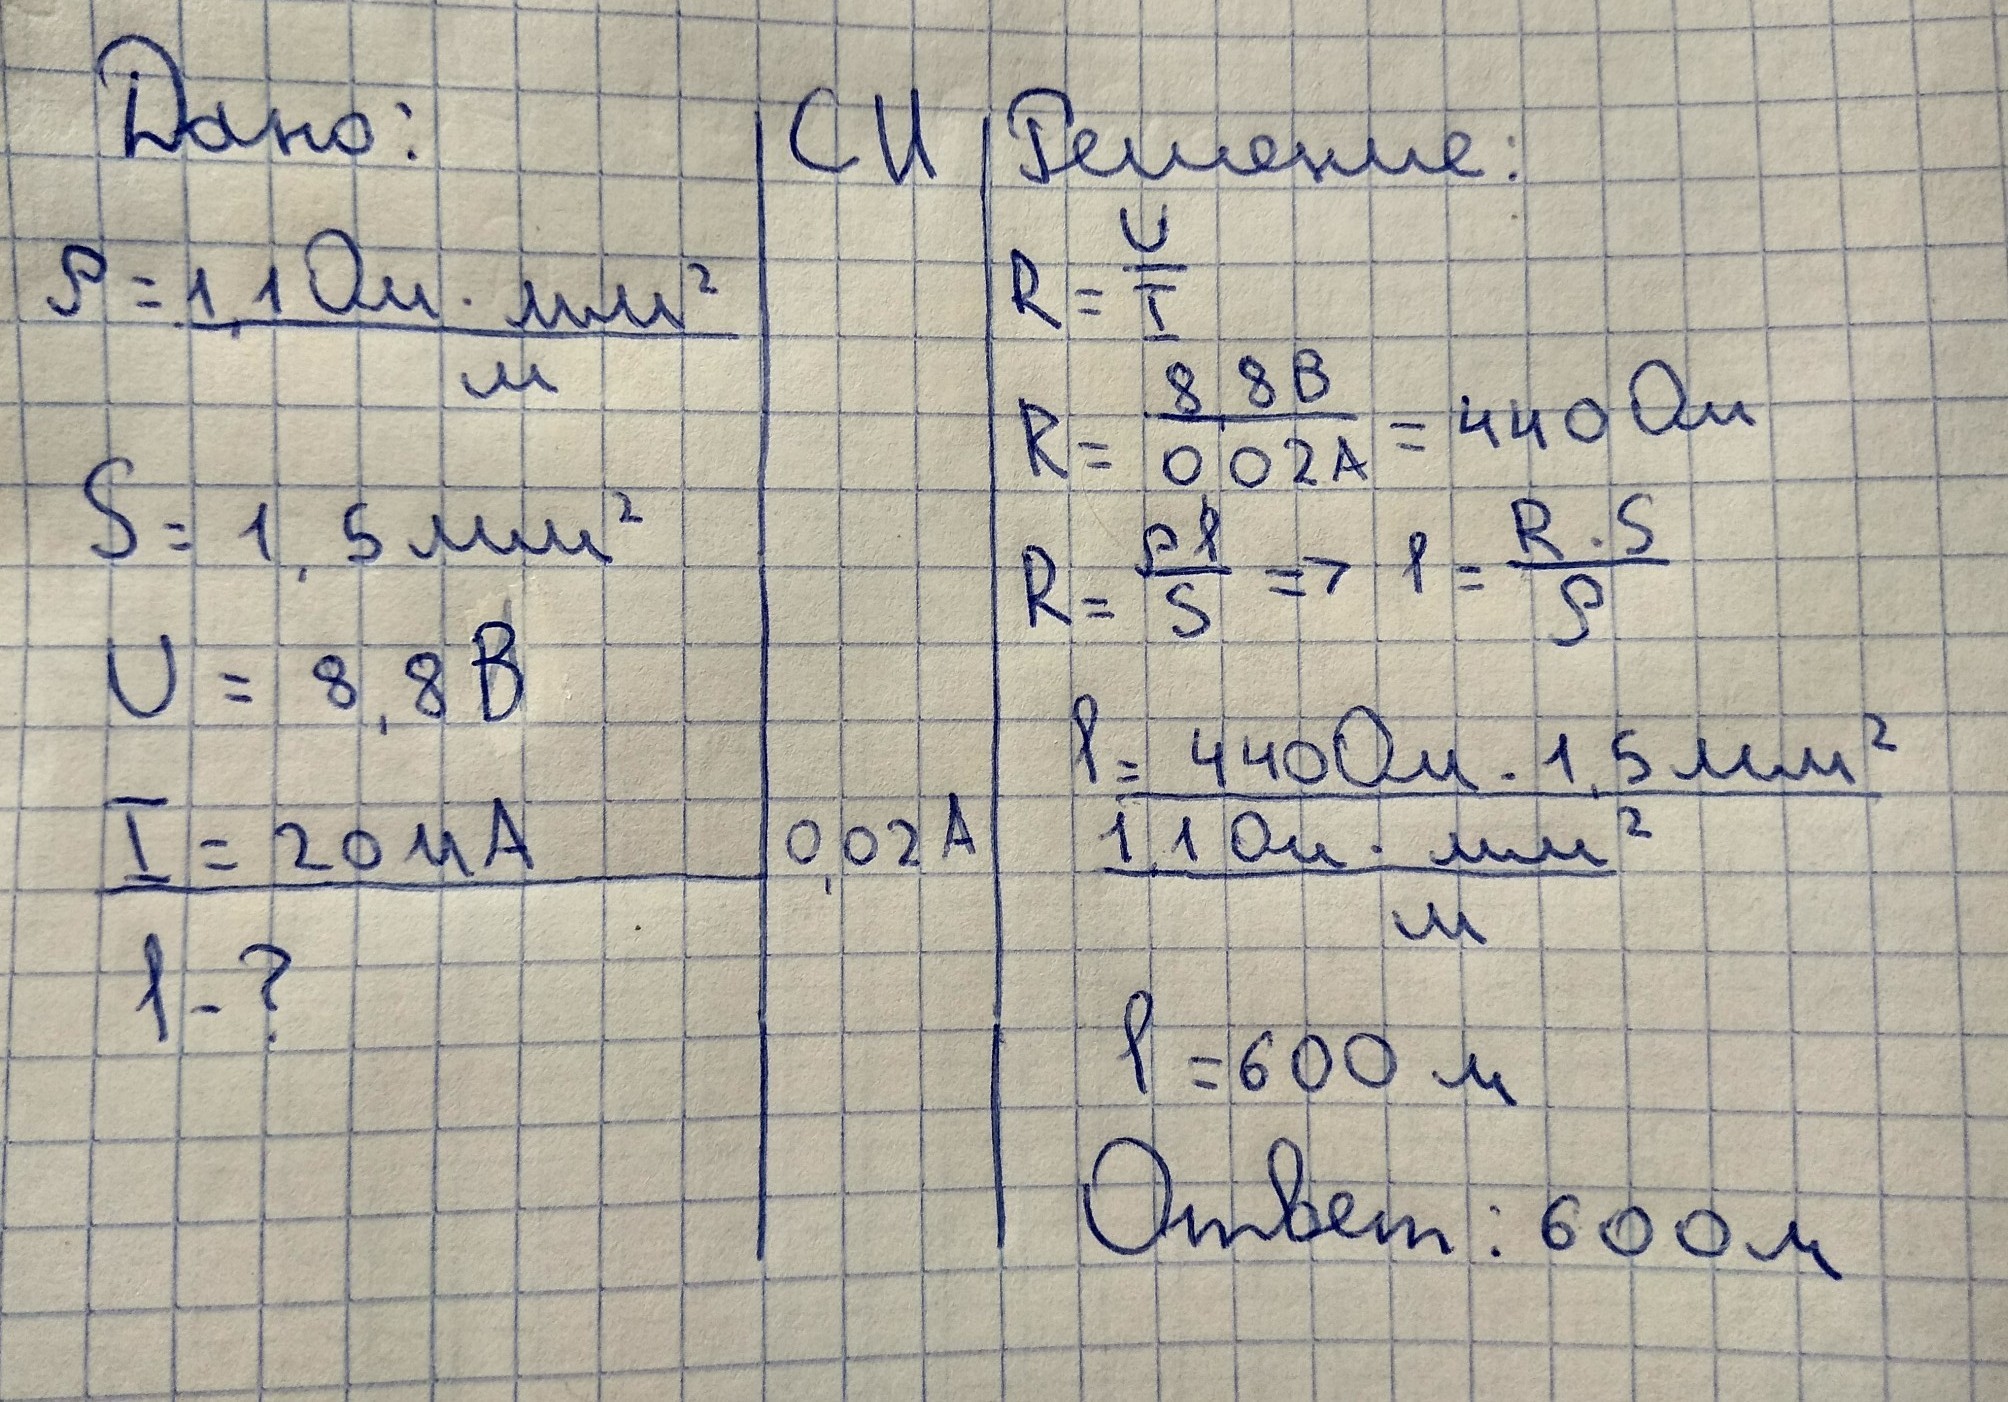 Дано:
ρ = 1,1 Ом · мм²
м
S = 1,5 мм²
U = 8,8 В
I = 20 мА
l - ?
СИ
0,02 А
Решение:
R = U
I
R = 8,8 В = 440 Ом
0,02 А
R = ρl => l = R · S
S ρ
l = 440 Ом · 1,5 мм²
1,1 Ом · мм²
м
l = 600 м
Ответ: 600 м